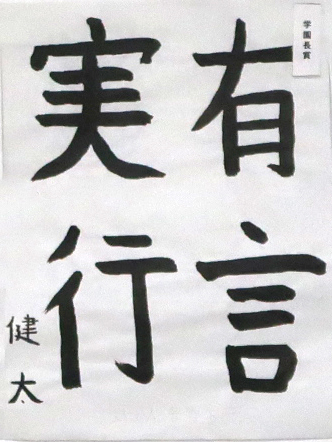 学園長賞
有言
実行
健太